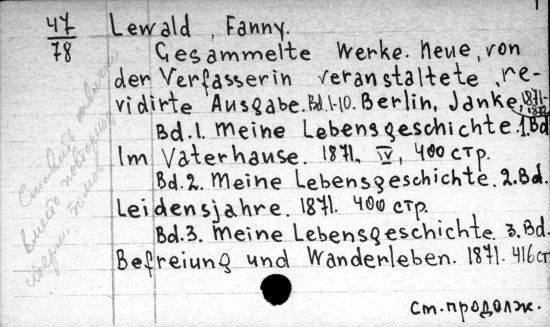 47
78
Lewald, Fanny.
Gesammelte Werke. Neue, von
der Verfasserin veranstaltete, re-
vidirte Ausgabe. Bd. 1-10. Berlin, Janke, 1871-
Bd. 1. Meine Lebensgeschichte. 1. Bd
Im Vaterhause. 1871. IV, 400 стр.
Bd. 2. Meine Lebensgeschichte. 2. Bd.
Leidensjahre. 1871. 400 стр.
Bd. 3. Meine Lebensgeschichte. 3. Bd.
Befreiung und Wanderleben. 1871. 416 ст
вместо повторения
см. продолж.